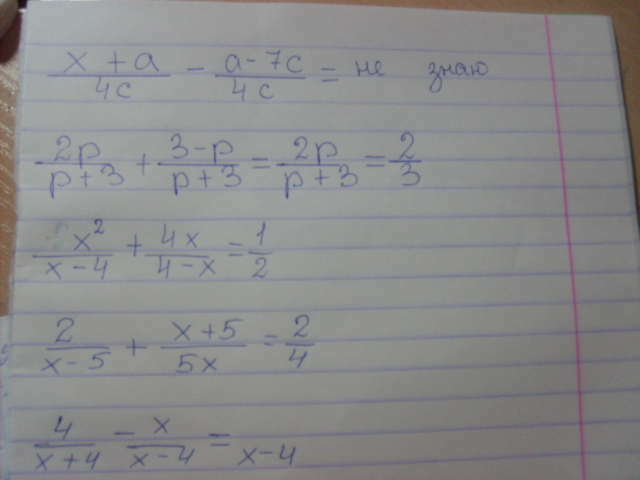 (x + a)/(4c) - (a - 7c)/(4c) = не знаю
(2p)/(p + 3) + (3 - p)/(p + 3) = (2p)/(p + 3) = 2/3
x²/(x - 4) + (4x)/(4 - x) = 1/2
2/(x - 5) + (x + 5)/(5x) = 2/4
4/(x + 4) - x/(x - 4) = x - 4